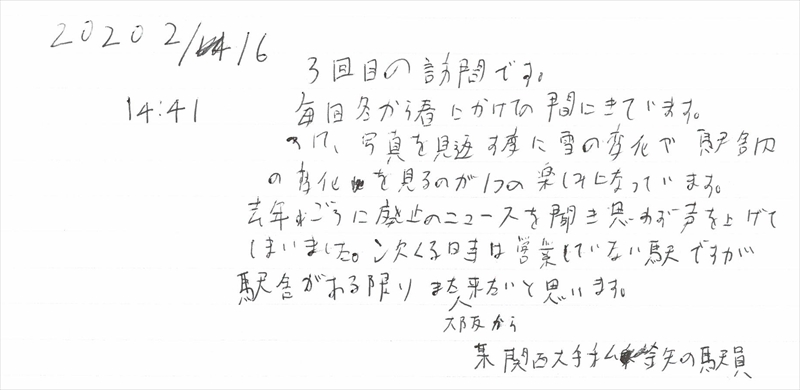 2020 2/16
14:41
3回目の訪問です。
毎回冬から春にかけての間にきています。
写真を見返す度に雪の変化で 駅舎内
の変化を見るのが1つの楽しみになっています。
去年ごろに廃止のニュースを聞き思わず声を上げて
しまいました。次くる時は営業していない駅ですが
駅舎がある限り また来たいと思います。
大阪から
某関西大手私鉄の駅員